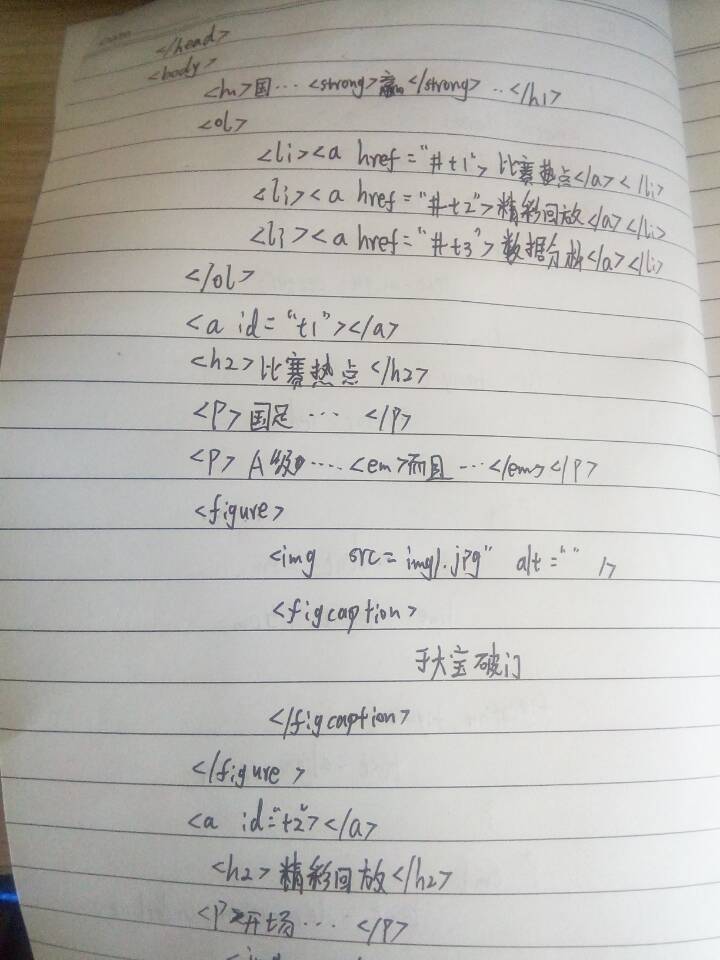 </head>
<body>
<h1>国…<strong>赢</strong>‥</h1>
<ol>
<li><a href="#t1">比赛热点</a></li>
<li><a href="#t2">精彩回放</a></li>
<li><a href="#t3">数据分析</a></li>
</ol>
<a id="t1"></a>
<h2>比赛热点</h2>
<P>国足… </P>
<P>A级….<em>而且…</em></P>
<figure>
<img src=img1.jpg" alt="" />
<figcaption>
于大宝破门
</figcaption>
</figure>
<a id="t2"></a>
<h2>精彩回放</h2>
<P>开场… </P>